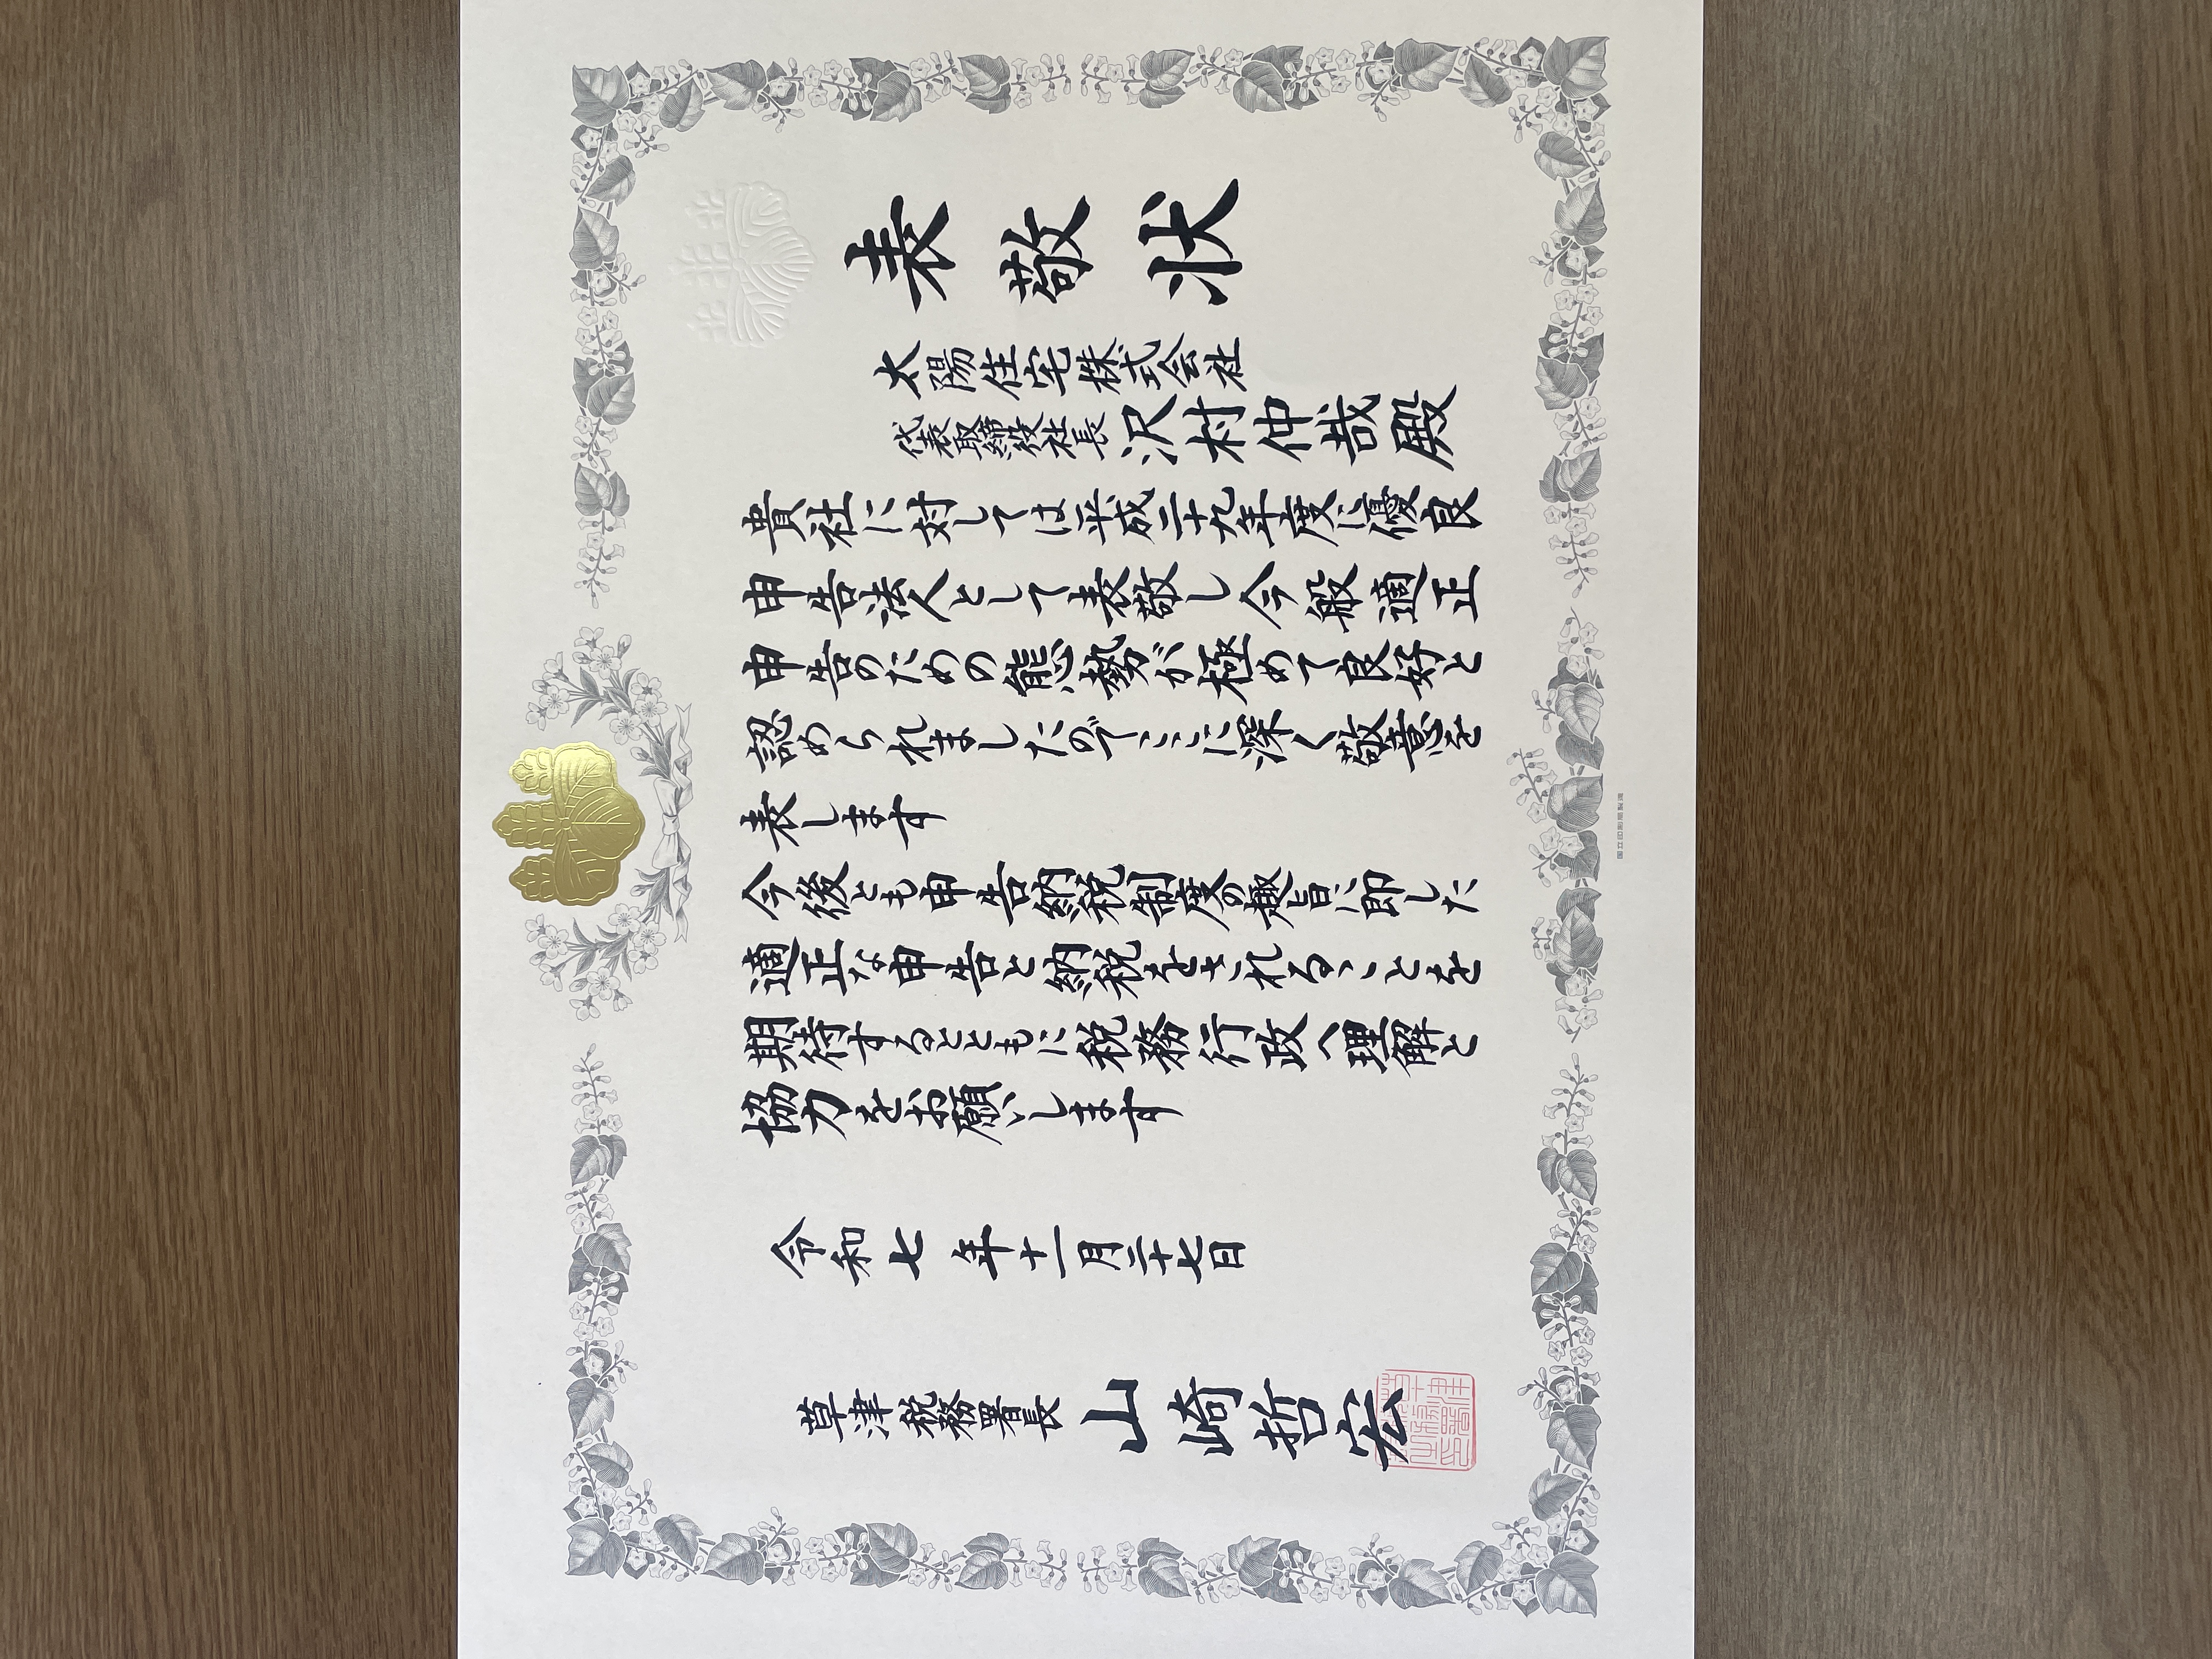 表敬状
太陽住宅株式会社
代表取締役社長 沢村仲哉殿
貴社に対しては平成二十九年度に優良
申告法人として表敬し今般適正
申告のための態勢が極めて良好と
認められましたのでここに深く敬意を
表します
今後とも申告納税制度の趣旨に即した
適正な申告と納税をされることを
期待するとともに税務行政へ理解と
協力をお願いします
令和七年十一月二十七日
草津税務署長 山崎哲宏
国立印刷局製造